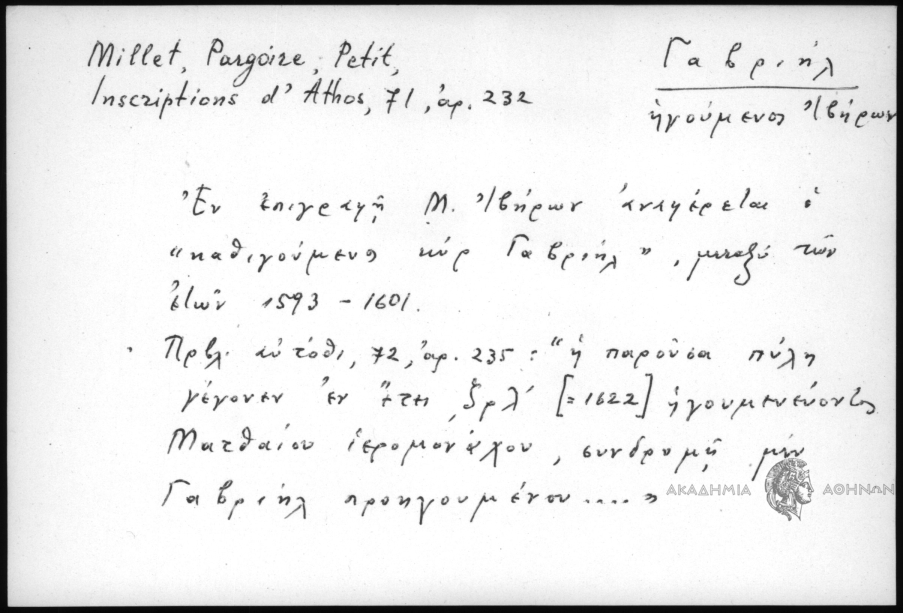 Millet, Pargoire, Petit,
Inscriptions d'Athos, 71, ἀρ. 232
Γαβριήλ
ἡγούμενος Ἰβήρων
Ἐν ἐπιγραφῇ Μ. Ἰβήρων ἀναφέρεται ὁ
"καθιγούμενος κύρ Γαβριήλ", μεταξύ τῶν
ἐτῶν 1593 - 1601.
Πρβλ. αὐτόθι, 72, ἀρ. 235: "ἡ παροῦσα πύλη
γέγονεν ἐν ἔτει ͵ζρλ´ [=1622] ἡγουμενεύοντος
Ματθαίου ἱερομονάχου, συνδρομῇ μὲν
Γαβριήλ προηγουμένου....."
ΑΚΑΔΗΜΙΑ ΑΘΗΝΩΝ